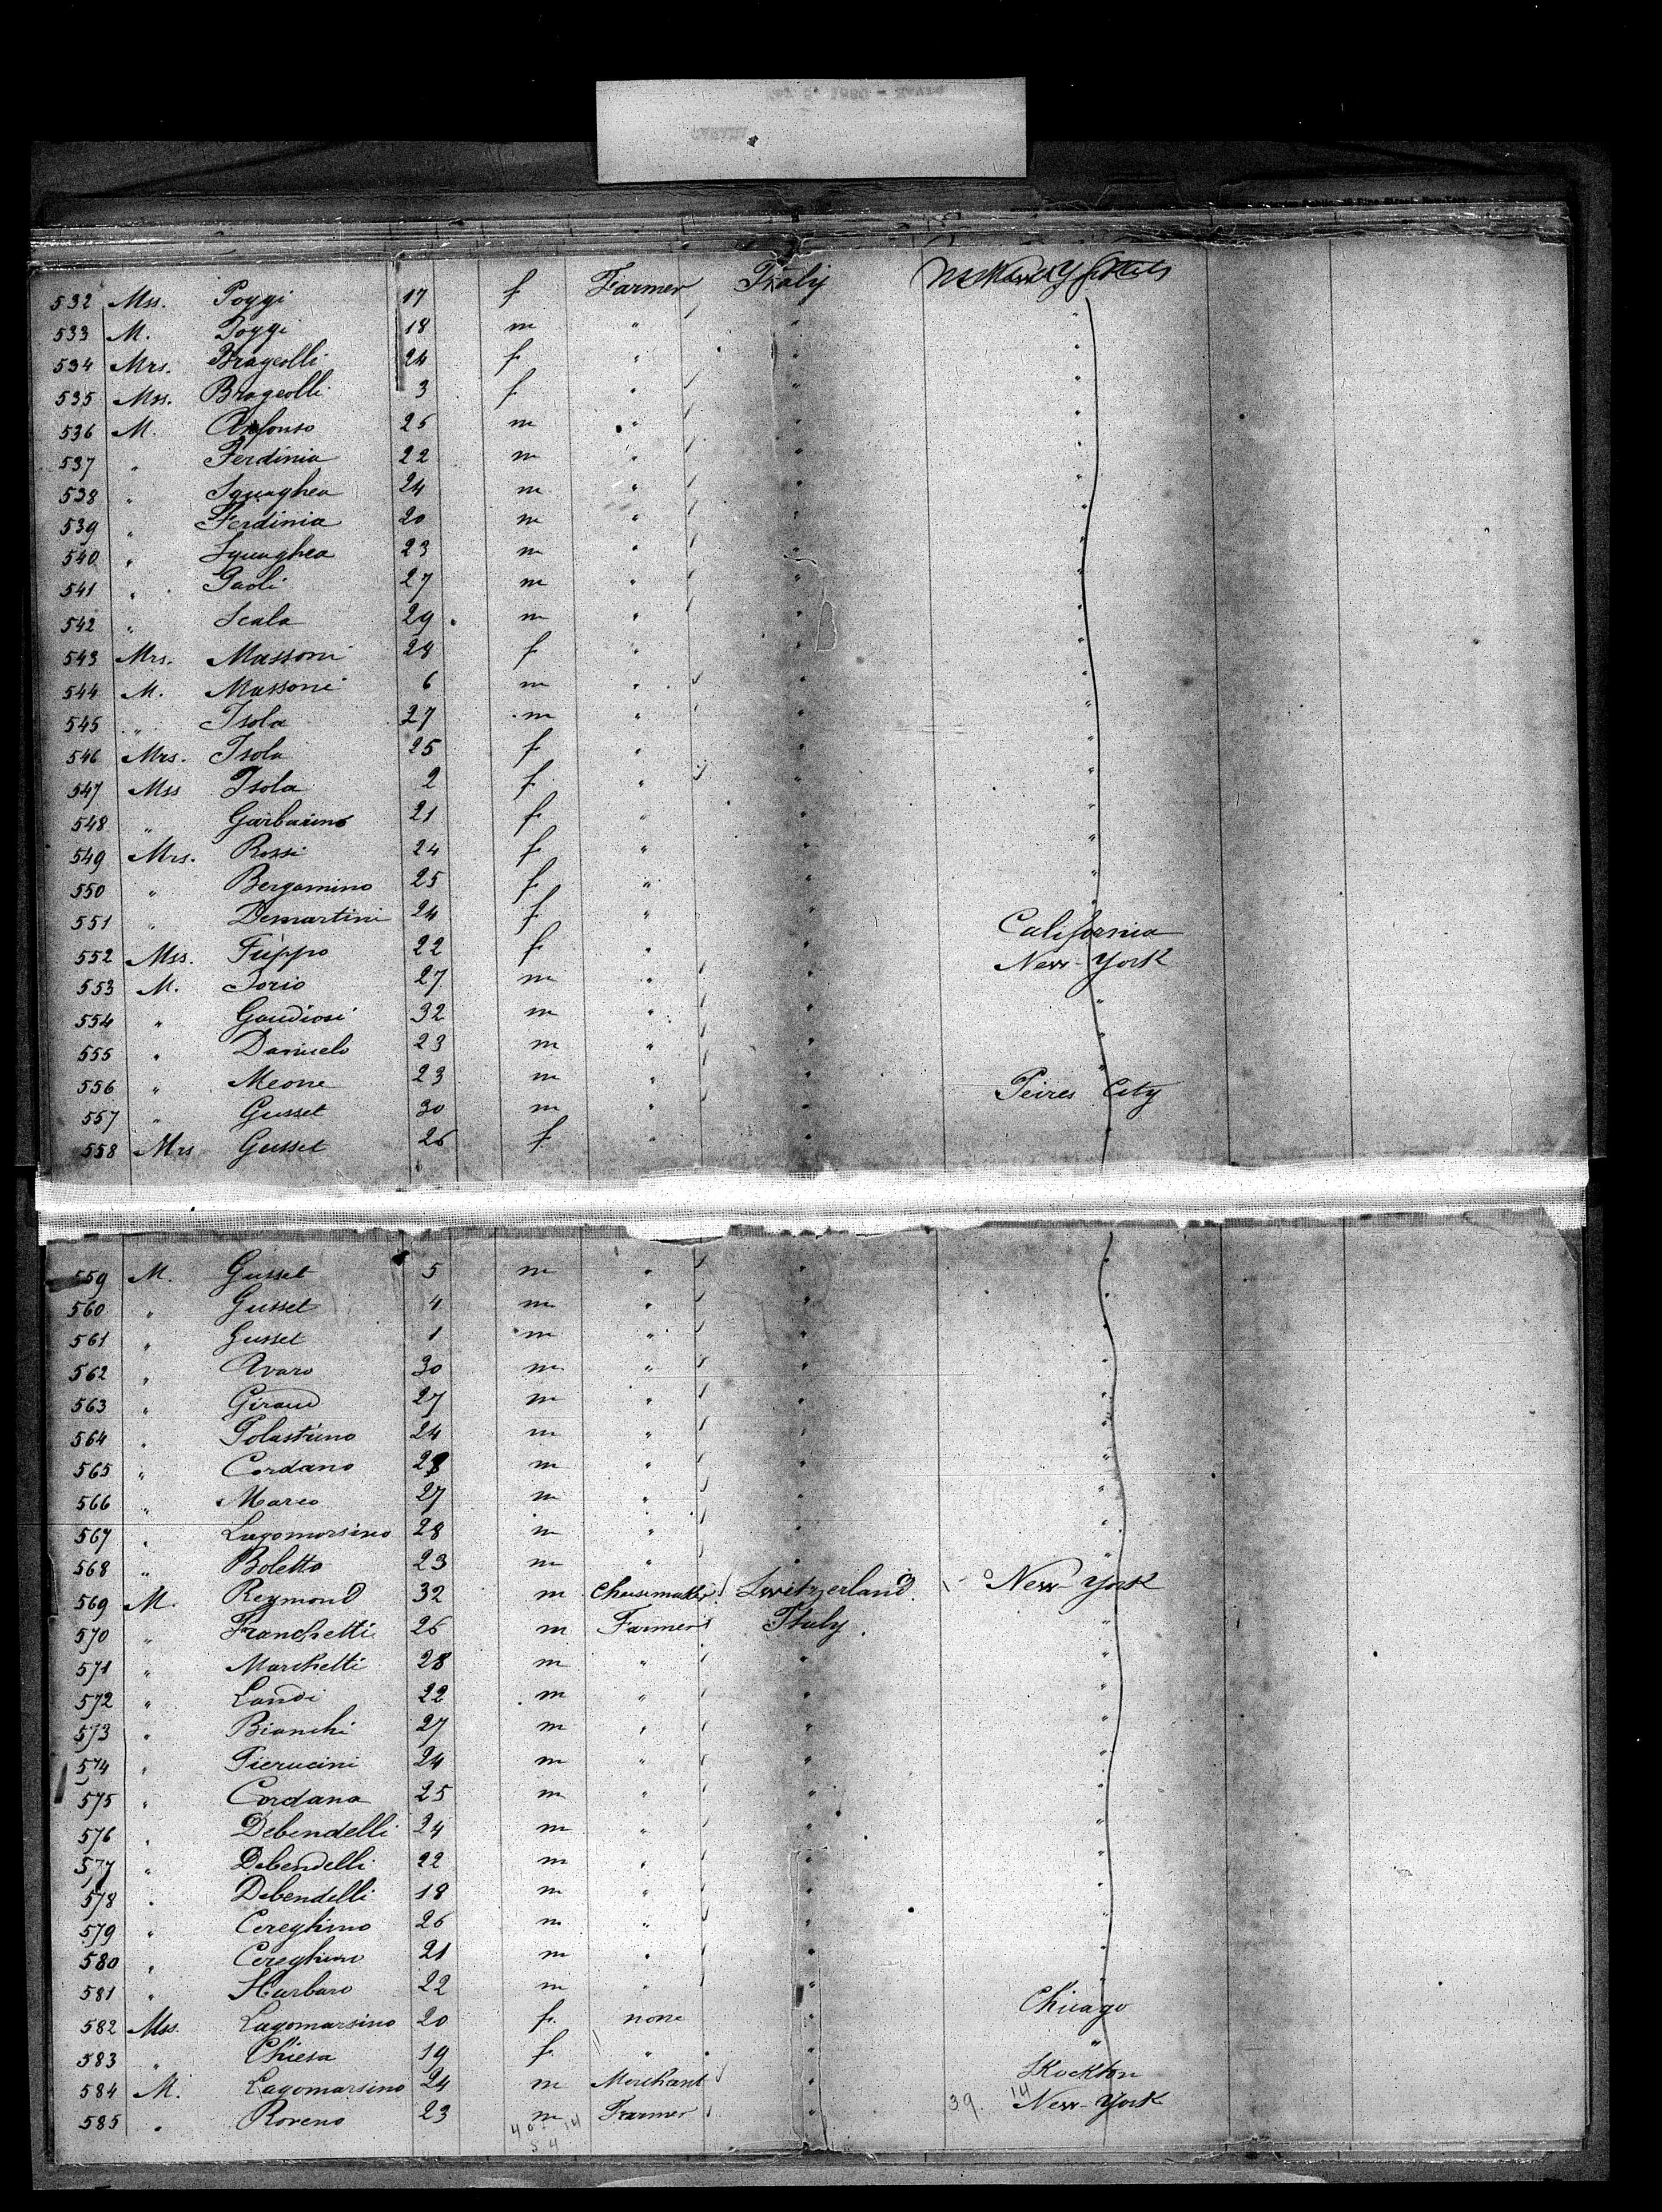 532 Mss. Poggi 17 f Farmer Italy
533 M. Poggi 18 m " "
534 Mrs. Brageolli 24 f " " "
535 Mss. Brageolli 3 f " " "
536 M. Anfonso 25 m " " "
537 " Ferdinia 22 m " " "
538 " Squaghea 24 m " " "
539 " Ferdinia 20 m " " "
540 " Squaghea 23 m " " "
541 " Paoli 27 m " " "
542 " Scala 29 m " " "
543 Mrs. Massoni 28 f " " "
544 M. Massoni 6 m " " "
545 " Isola 27 m " " "
546 Mrs. Isola 25 f " " "
547 Mss Isola 2 f " " "
548 " Garbarino 21 f " " "
549 Mrs. Rossi 24 f " " "
550 " Bergamino 25 f " " "
551 " Demartini 24 f " " California
552 Mss. Fuppo 22 f " " New-York
553 M. Iorio 27 m " " "
554 " Gaudiosi 32 m " " "
555 " Danielo 23 m " " "
556 " Meone 23 m " " Peires City
557 " Gusset 30 m " " "
558 Mrs Gusset 26 f " "
559 M. Gusset 5 m " " "
560 " Gusset 4 m " " "
561 " Gusset 1 m " " "
562 " Avaro 30 m " " "
563 " Giraud 27 m " " "
564 " Polastrino 24 m " " "
565 " Cordano 28 m " " "
566 " Marco 27 m " " "
567 " Lagomorsino 28 m " " "
568 " Boletto 23 m " " "
569 M. Reymond 32 m Cheesemaker Switzerland New-York
570 " Franchetti 26 m Farmer Italy "
571 " Marchetti 28 m " " "
572 " Landi 22 m " " "
573 " Bianchi 27 m " " "
574 " Pierucini 24 m " " "
575 " Cordana 25 m " " "
576 " Debendelli 24 m " " "
577 " Debendelli 22 m " " "
578 " Debendelli 18 m " " "
579 " Cereghino 26 m " " "
580 " Cereghino 21 m " " "
581 " Harbaro 22 m " " "
582 Mss. Lagomarsino 20 f. none " Chicago
583 " Chiesa 19 f. " " "
584 M. Lagomarsino 24 m Merchant " Stockton
585 " Roveno 23 m Farmer " 39. 14 New-York